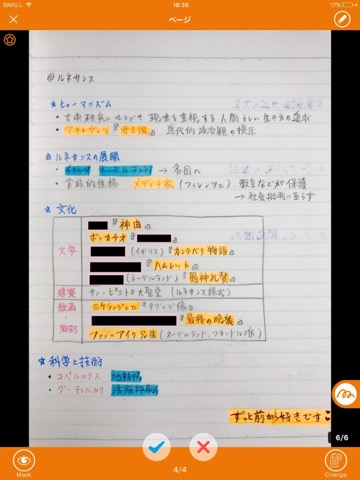 SIMなし 18:35 17%
ページ
@ルネサンス
☆ヒューマニズム
・古典研究にもとづき 現世を重視する人間らしい生き方の追求
・マキャヴェリ『君主論』近代的政治観の提示
☆ルネサンスの展開
→各国へ
メディチ家(フィレンツェ) 教皇などが保護
→社会批判に至らず
☆文化
文学
『神曲』
ボッカチオ『
(イギリス)『カンタベリ物語』
『ハムレット』
(ネーデルラント)『愚神礼賛』
建築 サン・ピエトロ大聖堂 (ルネサンス様式)
絵画・彫刻
ミケランジェロ『ダヴィデ像』
『最後の晩餐』
ファン=アイク兄弟 (ネーデルラント、フランドル派)
☆科学と技術
・コペルニクス 地動説
・グーテンベルク 活版印刷
ずっと前から好きです
6/6
Mask
4/4
Change